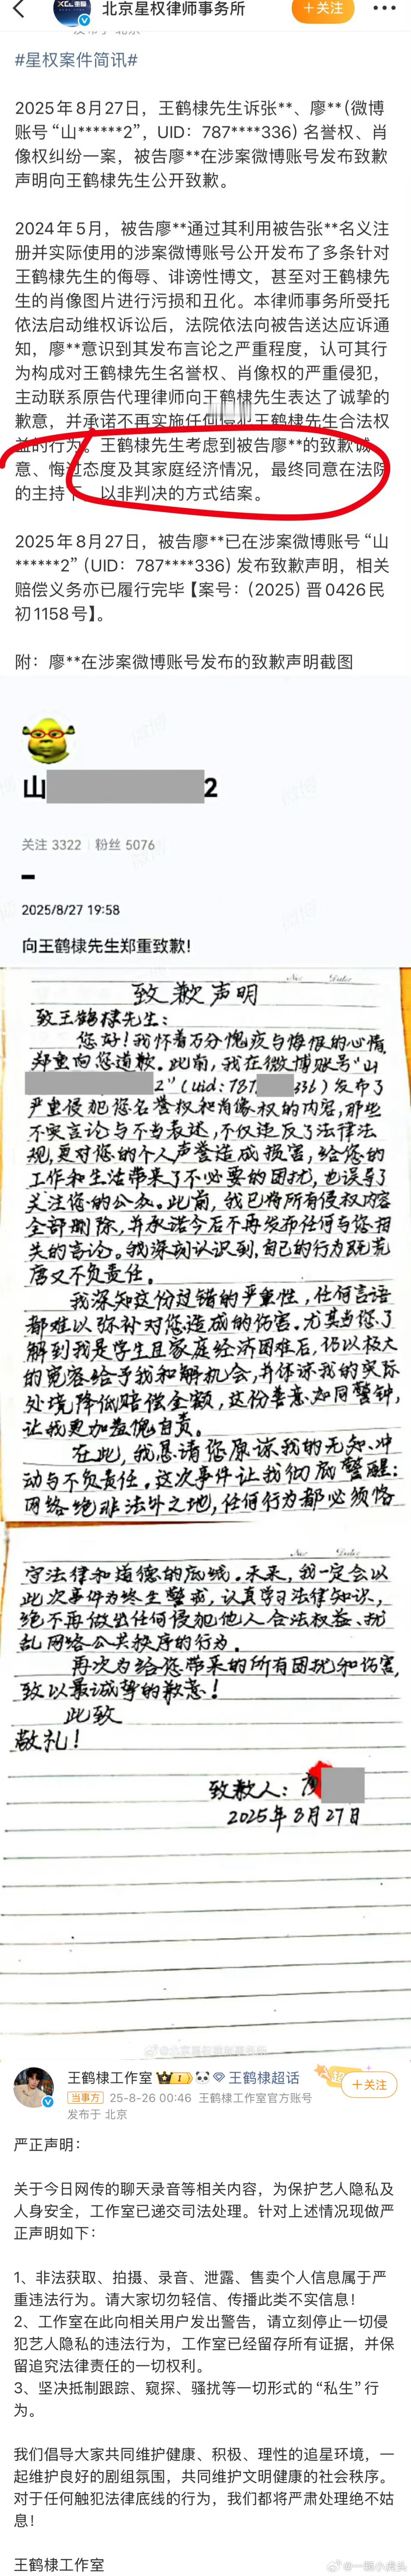 北京星权律师事务所
＋关注
发布于 北京
#星权案件简讯#
2025年8月27日，王鹤棣先生诉张**、廖**（微博
账号“山******2”，UID：787****336）名誉权、肖
像权纠纷一案，被告廖**在涉案微博账号发布致歉
声明向王鹤棣先生公开致歉。
2024年5月，被告廖**通过其利用被告张**名义注
册并实际使用的涉案微博账号公开发布了多条针对
王鹤棣先生的侮辱、诽谤性博文，甚至对王鹤棣先
生的肖像图片进行污损和丑化。本律师事务所受托
依法启动维权诉讼后，法院依法向被告送达应诉通
知，廖**意识到其发布言论之严重程度，认可其行
为构成对王鹤棣先生名誉权、肖像权的严重侵犯，
主动联系原告代理律师向王鹤棣先生表达了诚挚的
歉意，并承诺不再实施任何侵犯王鹤棣先生合法权
益的行为。王鹤棣先生考虑到被告廖**的致歉诚
意、悔过态度及其家庭经济情况，最终同意在法院
的主持下，以非判决的方式结案。
2025年8月27日，被告廖**已在涉案微博账号“山
******2”（UID：787****336）发布致歉声明，相关
赔偿义务亦已履行完毕【案号：（2025）晋0426民
初1158号】。
附：廖**在涉案微博账号发布的致歉声明截图
山 2
关注 3322 粉丝 5076
2025/8/27 19:58
向王鹤棣先生郑重致歉!
No. Date
致歉声明
致王鹤棣先生：
您好！我怀着万分愧疚与悔恨的心情
郑重向您道歉。此前，我在微博账号“山
(uid：787 336）发布了
严重侵犯您名誉权和肖像权的内容，那些
不实言论与不当表述，不仅违反了法律法
规，更对您的个人声誉造成损害，给您的
工作和生活带来了不必要的困扰，也误导了
关注您的公众。此前，我已将所有侵权内容
全部删除，并承诺今后不再发布任何与您相
关的言论。我深刻认识到，自己的行为既荒
唐又不负责任。
我深知这份过错的严重性，任何言语
都难以弥补对您造成的伤害。尤其当您了
解到我是学生且家庭经济困难后，仍以极大
的宽容给予我和解机会，并体谅我的实际
处境降低赔偿金额，这份善意如同警钟，
让我更加羞愧自责。
在此，我恳请您原谅我的无知、冲
动与不负责任。这次事件让我彻底警醒：
网络绝非法外之地，任何行为都必须恪
No. Date
守法律和道德的底线。未来，我一定会以
此次事件为终生警戒，认真学习法律知识，
绝不再做出任何侵犯他人合法权益、扰
乱网络公共秩序的行为。
再次为给您带来的所有困扰和伤害，
致以最诚挚的歉意！
此致
敬礼！
致歉人：
2025年8月27日
@北京星权律师事务所
王鹤棣工作室 王鹤棣超话
当事方 25-8-26 00:46 王鹤棣工作室官方账号
发布于 北京
＋关注
严正声明：
关于今日网传的聊天录音等相关内容，为保护艺人隐私及
人身安全，工作室已递交司法处理。针对上述情况现做严
正声明如下：
1、非法获取、拍摄、录音、泄露、售卖个人信息属于严
重违法行为。请大家切勿轻信、传播此类不实信息！
2、工作室在此向相关用户发出警告，请立刻停止一切侵
犯艺人隐私的违法行为，工作室已经留存所有证据，并保
留追究法律责任的一切权利。
3、坚决抵制跟踪、窥探、骚扰等一切形式的“私生”行
为。
我们倡导大家共同维护健康、积极、理性的追星环境，一
起维护良好的剧组氛围，共同维护文明健康的社会秩序。
对于任何触犯法律底线的行为，我们都将严肃处理绝不姑
息！
王鹤棣工作室
@一颗小虎头